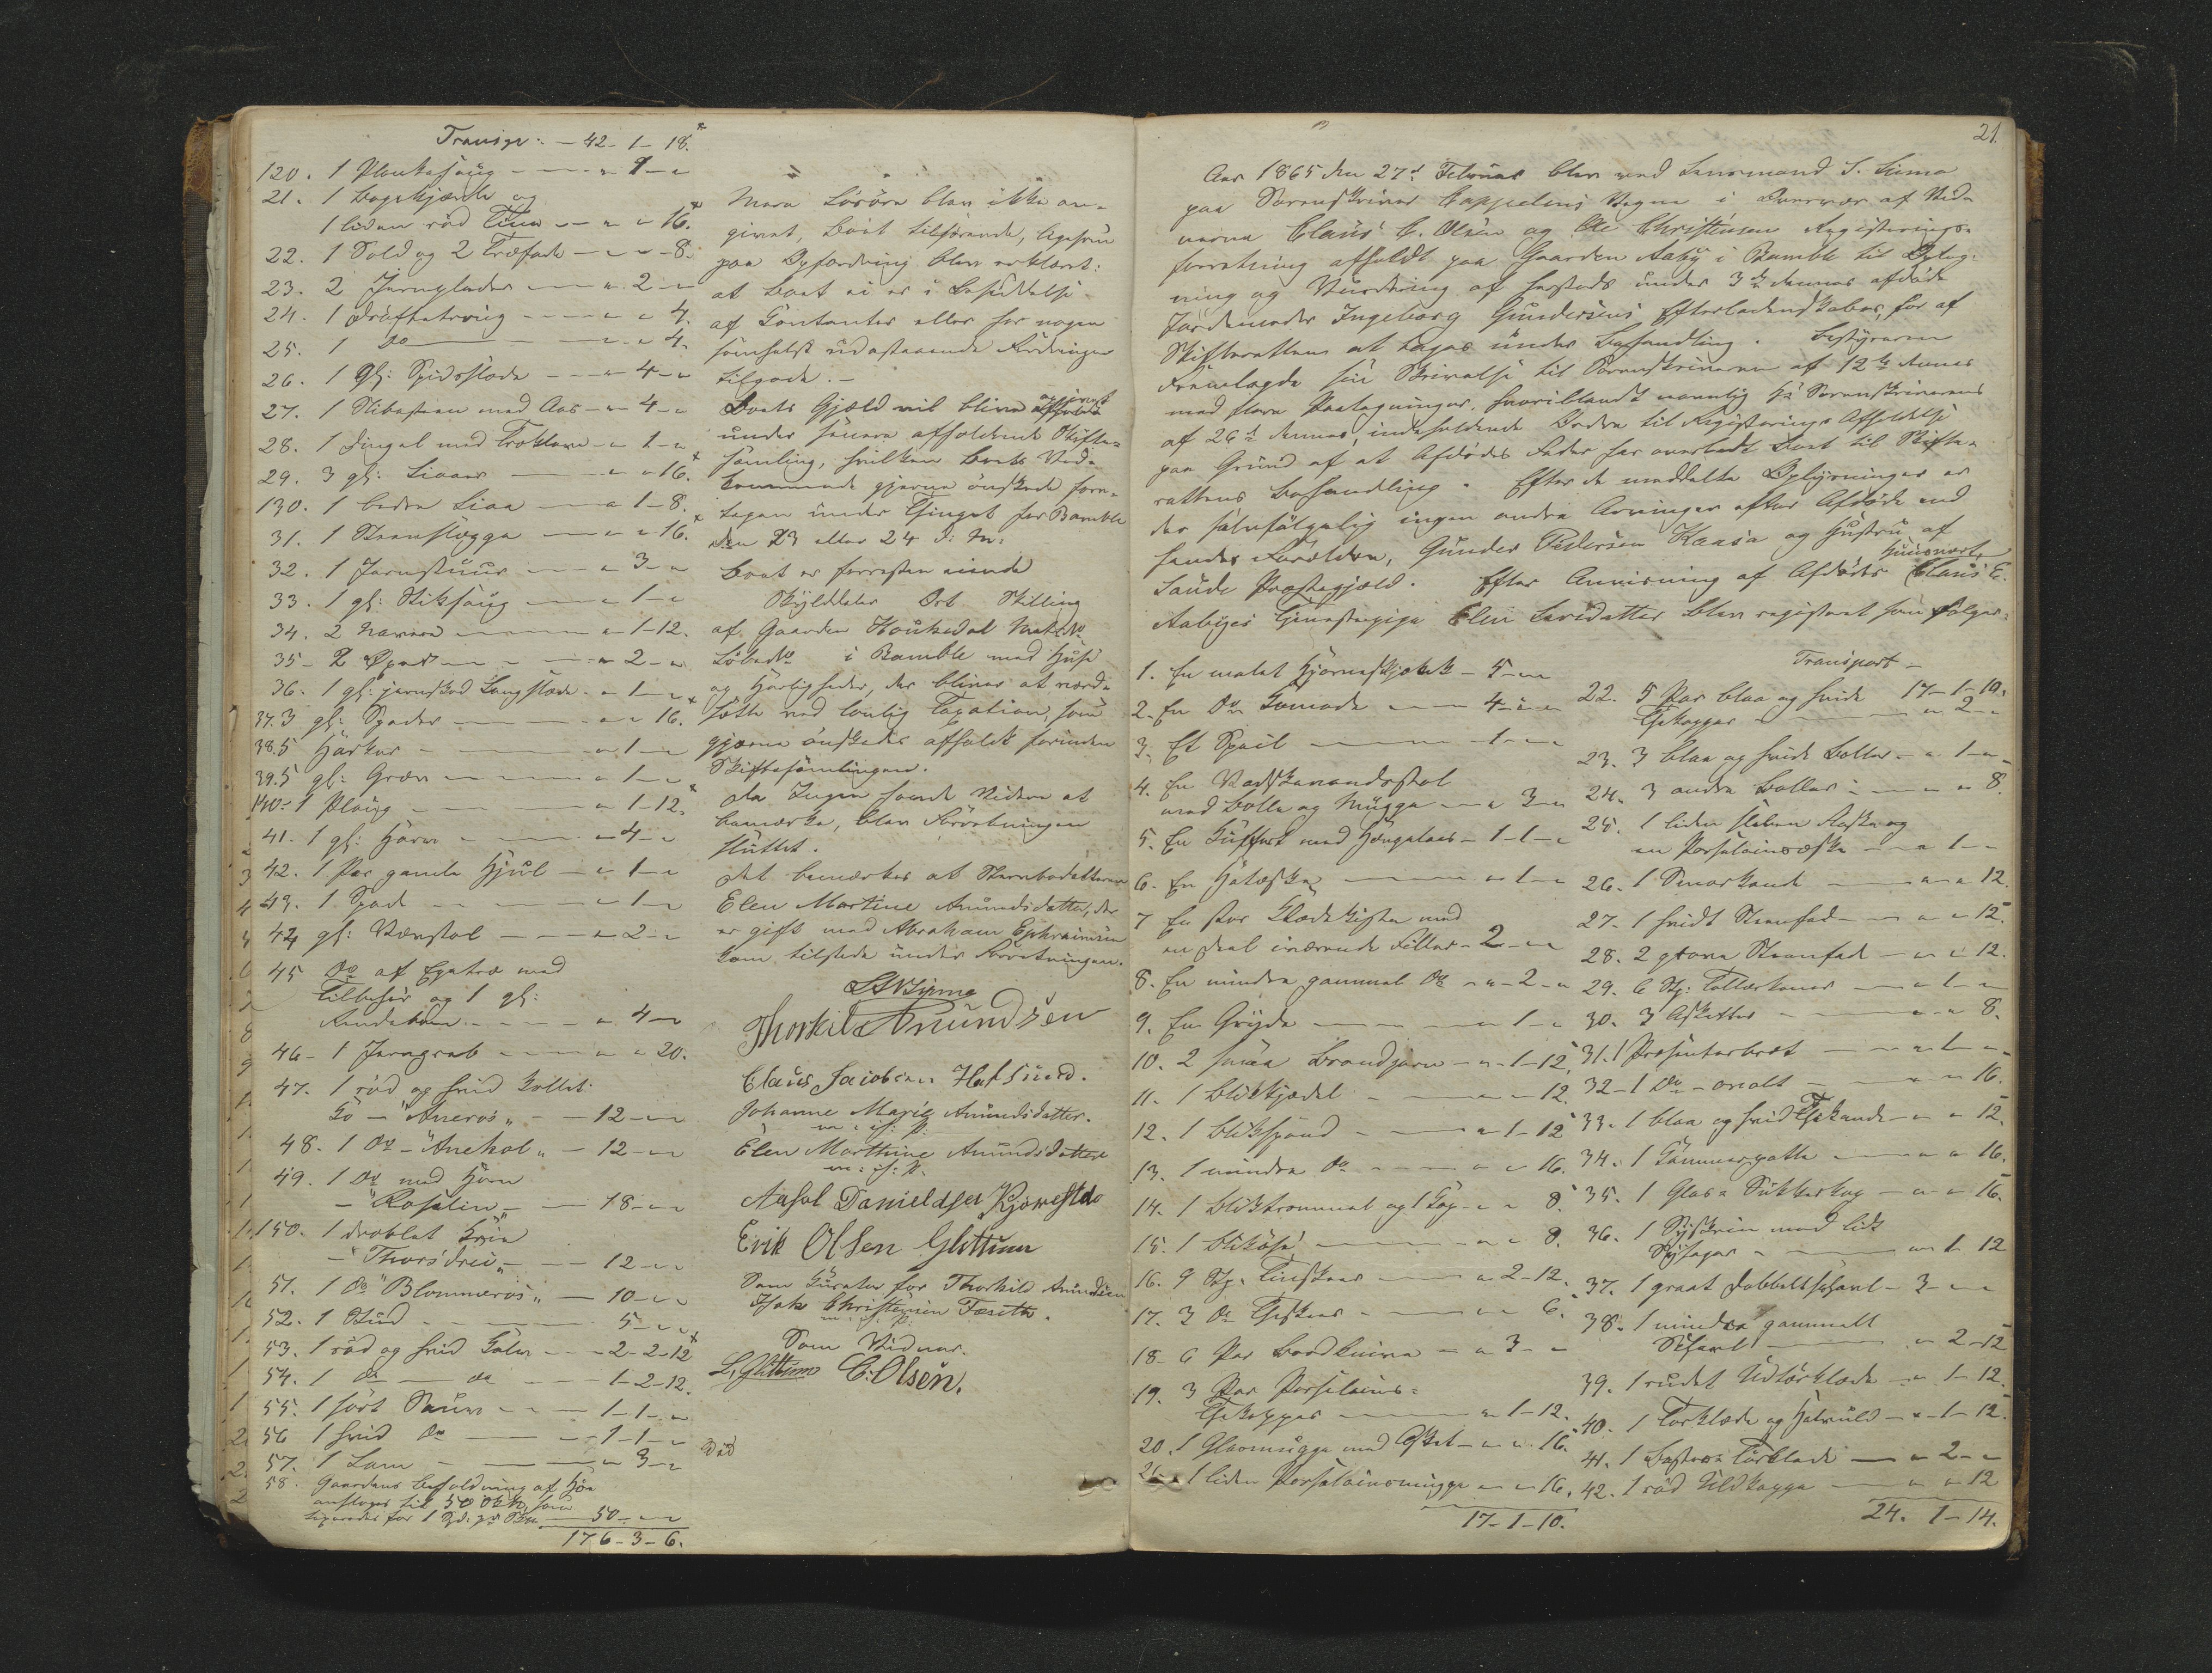 Transp: - 42 - 1 - 18.
120. 1 Plankesaug - " 1 - "
21. 1 Bagekjævle og
1 liden rød Tine - " " 16.
22. 1 Sold og 2 Træfade - " " - 8.
23. 2 Jernplader - " 2 - "
24. 1 Drøftetroug - " " 4.
25. 1 Do - " " 4.
26. 1 gl: Spidsslæde - " 4 - "
27. 1 Slibesteen med Aas - " 4 - "
28. 1 Dingel med Træklave - " 1 - "
29. 3 gl: Liaaer - " " 16.
130. 1 bedre Liaa - " 1 - 8.
31. 1 Steenslægge - " " 16.
32. 1 Jernstuur - " 3 - "
33. 1 gl: Stiksaug - " 1 - "
34. 2 Navere - " 1 - 12.
35 - 2 Øxer - " 2 - "
36. 1 gl: jernskod Langslæde - " 1 - "
37. 3 gl: Spader - " " 16.
38. 5 Harker - " 1 - "
39. 5 gl: Greve - " 1 - "
140 - 1 Ploug - " 1 - 12.
41. 1 gl: Harv - " 4 - "
42. 1 Par gamle Hjul - " 1 - "
43. 1 Spade - " 1 - "
44 gl: Vævstol - " 2 - "
45 Do af Egetræ med
Tilbehør og 1 gl:
- " 4 - "
46 - 1 Jerngreb - " " 20.
47. 1 rød og hvid kollet
Ko - "Aneros" - 12 - " "
48. 1 Do - "Anekol" - 12 - " "
49. 1 Do med Horn
- "Rosalin" - 18 - " "
150. 1 droplet Kvie
- "Thorsdrei" - 12 - " "
51. 1 Do "Blommeros" - 10 - " "
52. 1 Stud - 5 - " "
53. 1 rød og hvid Kalv - 2 - 2 - 12
54. 1 Do - Do - 1 - 2 - 12.
55. 1 sort Sau - 1 - 1 - "
56 1 hvid Do - 1 - 1 - "
57. 1 Lam - " 3 - "
58. Gaardens Beholdning af Hø
ansloges til 50 , som
for 1 Spd: pr - 50 - " "
176 - 3 - 6.
Mere Løsøre blev ikke an-
givet, Boet tilhørende, ligesom
paa Opfordring blev erklæret:
at Boet ei er i Besiddelse
af Contanter eller har nogen
somhelst udestaaende Fordringer
tilgode. -
Boets Gjæld vil blive opgivet
under senere afholdende Skifte-
samling, hvilken Boets Ved-
kommende gjerne ønskede fore-
tagen under Thinget for Bamble
den 23 eller 24 d: M:
Boet er forresten eiende
Skylddaler Ort Skilling
af Gaarden Houkedal Mat: No
Løbe No i Bamble med Huse
og Herligheder, der bliver at værd-
sætte ved lovlig Taxation, som
gjerne ønskedes afholdt forinden
Skiftesamlingen.
Da Ingen havde Videre at
bemærke, blev Forretningen
sluttet.
Det bemærkes at Stervbodatteren
Elen Martine Amundsdatter, der
er gift med Abraham Ephraimsen
kom tilstede under Forretningen.
Thorkild Amundsen
Claus Jacobsen Hafsund.
Johanne Marie Amundsdatter.
m: if: P:
Elen Marthine Amundsdatter
m: if: P.
Aasol Danieldsen
Erik Olsen Glittum
Som Curator for Thorkild Amundsen
Isak Christensen Fæseth.
m: if: P:
Som Vidner.
L. Glittum C: Olsen.
21.
Aar 1865 den 27de Februar blev ved Lensmand S. Sime
paa Sorenskriver Cappelens Vegne i Overvær af Vid-
nerne Claus C. Olsen og Ole Christensen Registrerings-
forretning afholdt paa Gaarden Aaby i Bamble til Opteg-
ning og Vurdering af hersteds under 3de dennes afdøde
Jordemoder Ingeborg Gundersens Efterladenskaber, for af
Skifteretten at tages under Behandling. Bestyreren
fremlagde sin Skrivelse til Sorenskriveren af 12te dennes
med flere Paategninger, hvoriblandt navnlig Hr Sorenskriverens
af 26de dennes, indeholdende Ordre til Registrerings Afholdelse
paa Grund af at Afdødes Fader har overladt Boet til Skifte-
rettens Behandling. Efter de meddelte Oplysninger er
der selvfølgelig ingen andre Arvinger efter Afdøde end
hendes Forældre, Gunder Pedersen Kaasa og Hustru af
Saude Præstegjæld. Efter Anvisning af Afdødes Huusvært, Claus C.
Aabyes Tjenestepige Elen Larsdatter blev registreret som følger:
1. En malet Hjørneskjænk - 5 - " "
2. En Do Comode - 4 - " "
3. Et Speil - 1 - " "
4. En Vadskevandsstol
med Bolle og Mugge - " 3 - "
5. En Kuffert med Hængelaas - 1 - 1 - "
6. En Hatæske - " 1 - "
7 En stor Klædekiste med
en Deel iværende Filler - 2 - " "
8. En mindre gammel Do - " 2 - "
9. En Gryde - " 1 - "
10. 2 smaa Brændjern - " 1 - 12.
11. 1 Blikkjædel - " " 12.
12. 1 Blikspand - " 1 - 12
13. 1 mindre Do - " " 16.
14. 1 Bliktrommel og 1 Kop - " " 8.
15. 1 Blikøse - " " 8.
16. 9 Stk. Tinskeer - " 2 - 12.
17. 3 Do Theskeer - " " 6.
18 - 6 Par Bordknive - " 3 - "
19. 3 Par Porselains-
Thekopper - " 1 - 12.
20. 1 Glasmugge med Asket - " " 16.
21. 1 liden Porselainsmugge - " " 16.
17 - 1 - 10.
Transport -
17 - 1 - 10.
22. 5 Par blaa og hvide
Thekopper - " 2 - "
23. 3 blaa og hvide Boller - " 1 - "
24. 3 andre Boller - " " 8.
25. 1 liden sleben Flaske og
en Porselainsæske - " 1 - "
26. 1 Smørkande - " " 12.
27. 1 hvidt Steenfad - " " 12.
28. 2 grønne Steenfade - " " 12.
29. 6 Stk: Tallerkener - " 1 - "
30. 3 Asketter - " " 8.
31. 1 Præsenterbræt - " 1 - "
32 - 1 Do - ovalt - " " 16.
33. 1 blaa og hvid Thekande - " " 12.
34. 1 - " " 16.
35. 1 Glas - Sukkerkop - " " 16.
36. 1 Syskrin med lidt
Sysager - " 1 - 12
37. 1 graat Dobbeltschavl - 3 - " "
38. 1 mindre gammelt
Schavl - " 2 - 12
39. 1 rudet Uldtørklæde - " 1 - 12.
40. 1 Tørklæde og Halvuld - " 1 - 12.
41. 1 Tørklæde - " 2 - "
42. 1 rød Uldkappe - " " 12
24. 1 - 14.